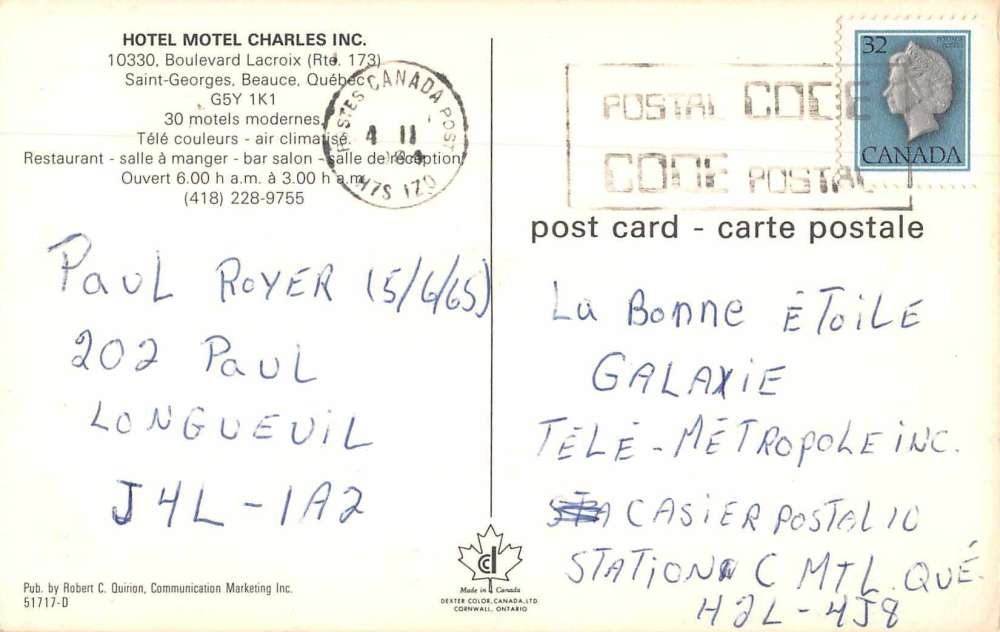 HOTEL MOTEL CHARLES INC.
10330, Boulevard Lacroix (Rte. 173)
Saint-Georges, Beauce, Québec
G5Y 1K1
30 motels modernes,
Télé couleurs - air climatisé.
Restaurant - salle à manger - bar salon - salle de réception
Ouvert 6.00 h a.m. à 3.00 h a.m.
(418) 228-9755
POSTES CANADA POST
4 II
H7S 1Z0
POSTAL CODE
CODE POSTAL
32
CANADA
post card - carte postale
PAUL ROYER (5/6/65)
202 PAUL
LONGUEUIL
J4L - 1A2
La Bonne ÉToiLE
GALAXIE
TÉLÉ - MÉTROPOLE INC.
CASIER POSTAL 10
STATION C MTL. QUÉ.
H2L - 4J8
Pub. by Robert C. Quirion, Communication Marketing Inc.
51717-D
Made in Canada
DEXTER COLOR, CANADA, LTD
CORNWALL, ONTARIO